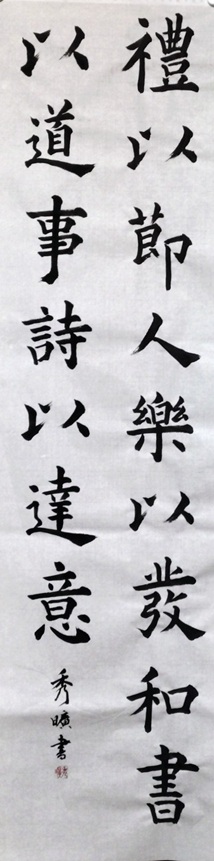 禮以節人樂以發和書
以道事詩以達意
秀曠書